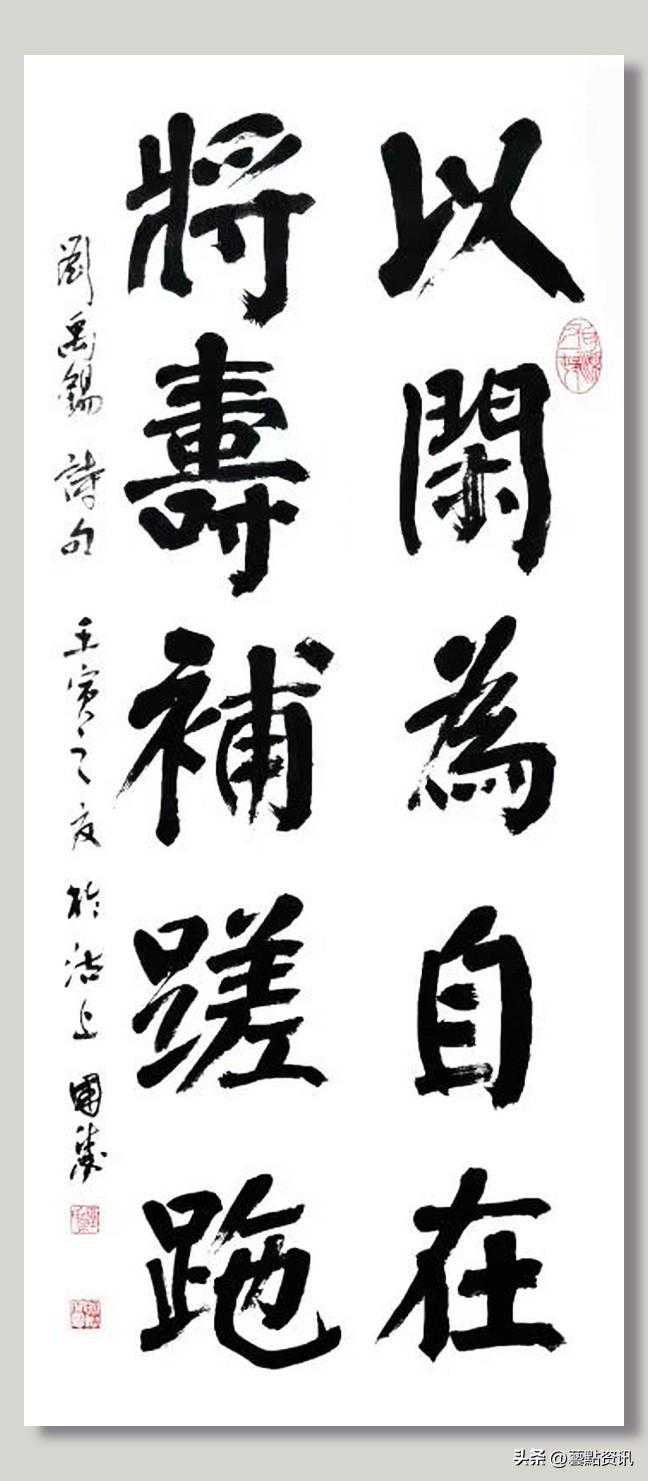 以閑為自在
將壽補蹉跎
劉禹錫詩句 壬寅之夜於沽上 國勝
头条 @藝點资讯